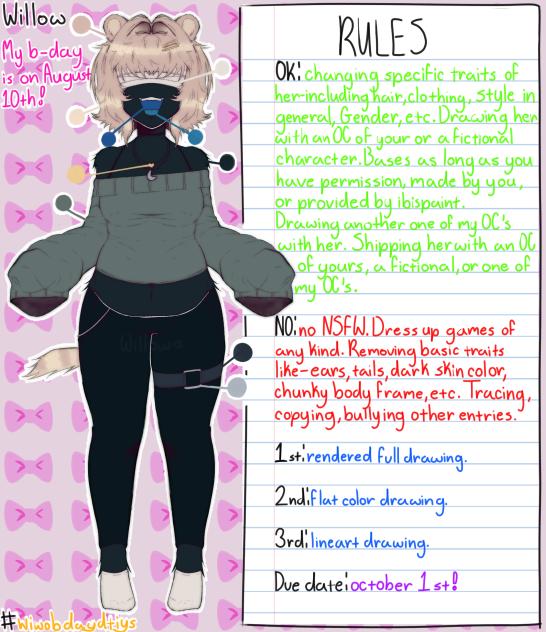 Willow
My b-day
is on August
10th!
RULES
OK: changing specific traits of
her-including hair, clothing, style in
general, Gender, etc. Drawing her
with an OC of your or a fictional
character. Bases as long as you
have permission, made by you,
or provided by ibispaint.
Drawing another one of my OC's
with her. Shipping her with an OC
of yours, a fictional, or one of
my OC's.
NO: no NSFW. Dress up games of
any kind. Removing basic traits
like-ears, tails, dark skin color,
chunky body frame, etc. Tracing,
copying, bullying other entries.
1st: rendered full drawing.
2nd: flat color drawing.
3rd: lineart drawing.
Due date: october 1st!
Willowo
#wiwobdaydtiys